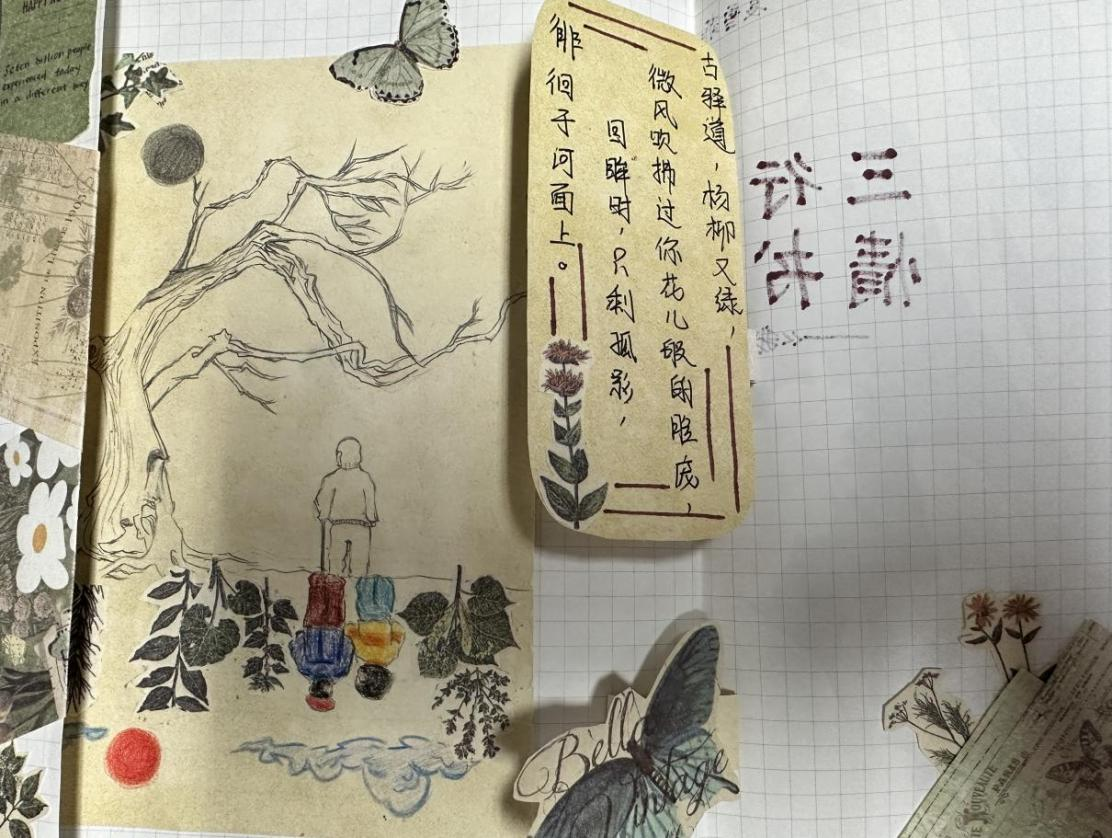 HAPPY
Seven billion people
experienced today
in a different way
EXPOSITION
古驿道，杨柳又绿，
微风吹拂过你花儿般的脸庞，
回眸时，只剩孤影，
徘徊于河面上。
三行
情书
Belle
Vintage
NOUVEAUTE
PARIS